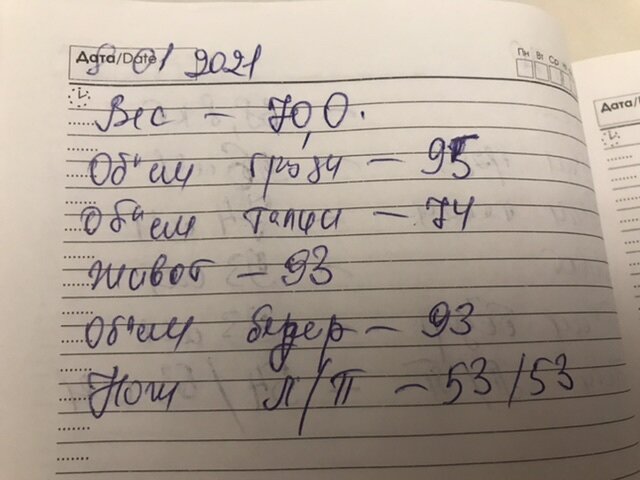 Дата/Date 8 01 2021
Пн Вт Ср
Дата/
Вес - 70,0.
Объем груди - 95
Объем талии - 74
Живот - 93
Объем бедер - 93
Ноги Л/П - 53/53